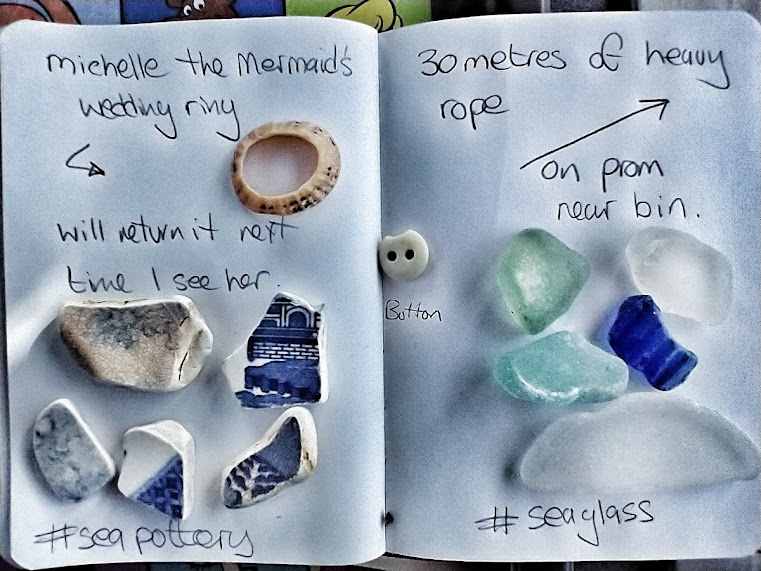 michelle the Mermaid's
wedding ring
will return it next
time I see her.
#sea pottery
Button
30 metres of heavy
rope
on prom
near bin.
#seaglass